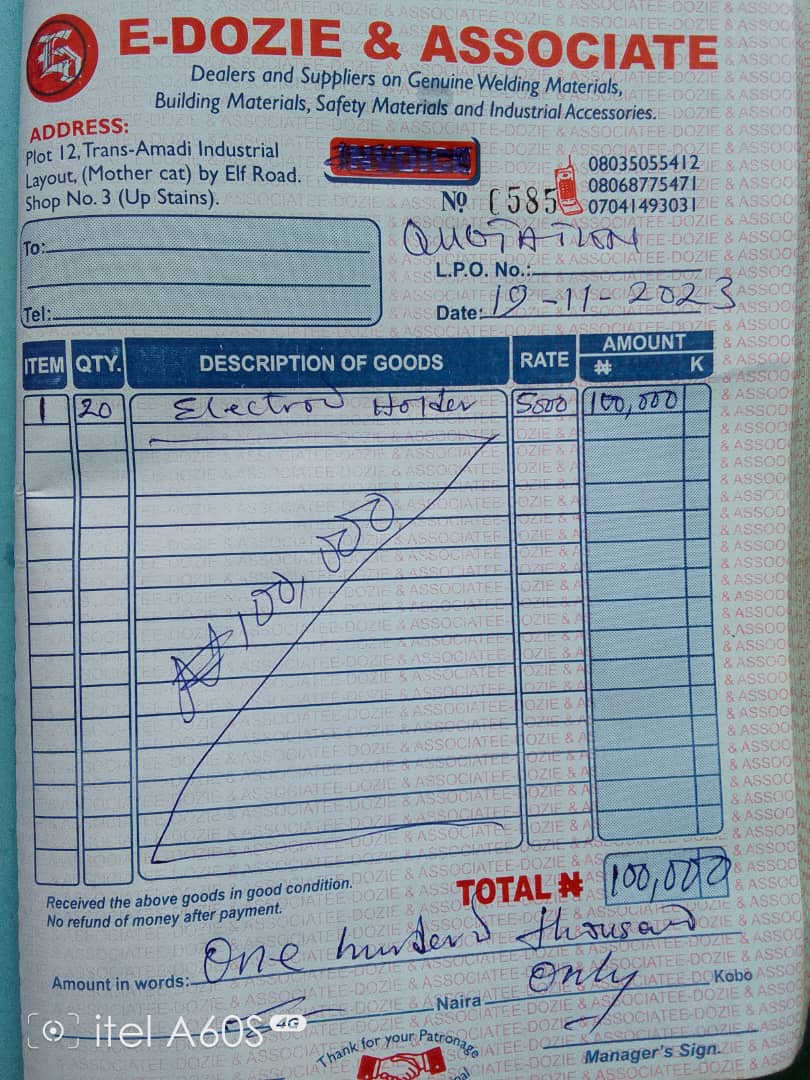 E-DOZIE & ASSOCIATE
Dealers and Suppliers on Genuine Welding Materials,
Building Materials, Safety Materials and Industrial Accessories.
ADDRESS:
Plot 12, Trans-Amadi Industrial
Layout, (Mother cat) by Elf Road.
Shop No. 3 (Up Stains).
INVOICE
08035055412
08068775471
07041493031
Nº 0585
QUOTATION
To:
L.P.O. No.:
Tel:
Date: 19-11-2023
ITEM QTY. DESCRIPTION OF GOODS RATE AMOUNT
₦ K
1 20 Electrod Holder 5000 100,000
₦100,000
Received the above goods in good condition.
No refund of money after payment.
TOTAL ₦ 100,000
Amount in words: One hunderd thousand
Naira Only Kobo
Thank for your Patronage
Manager's Sign.
itel A60S 4G